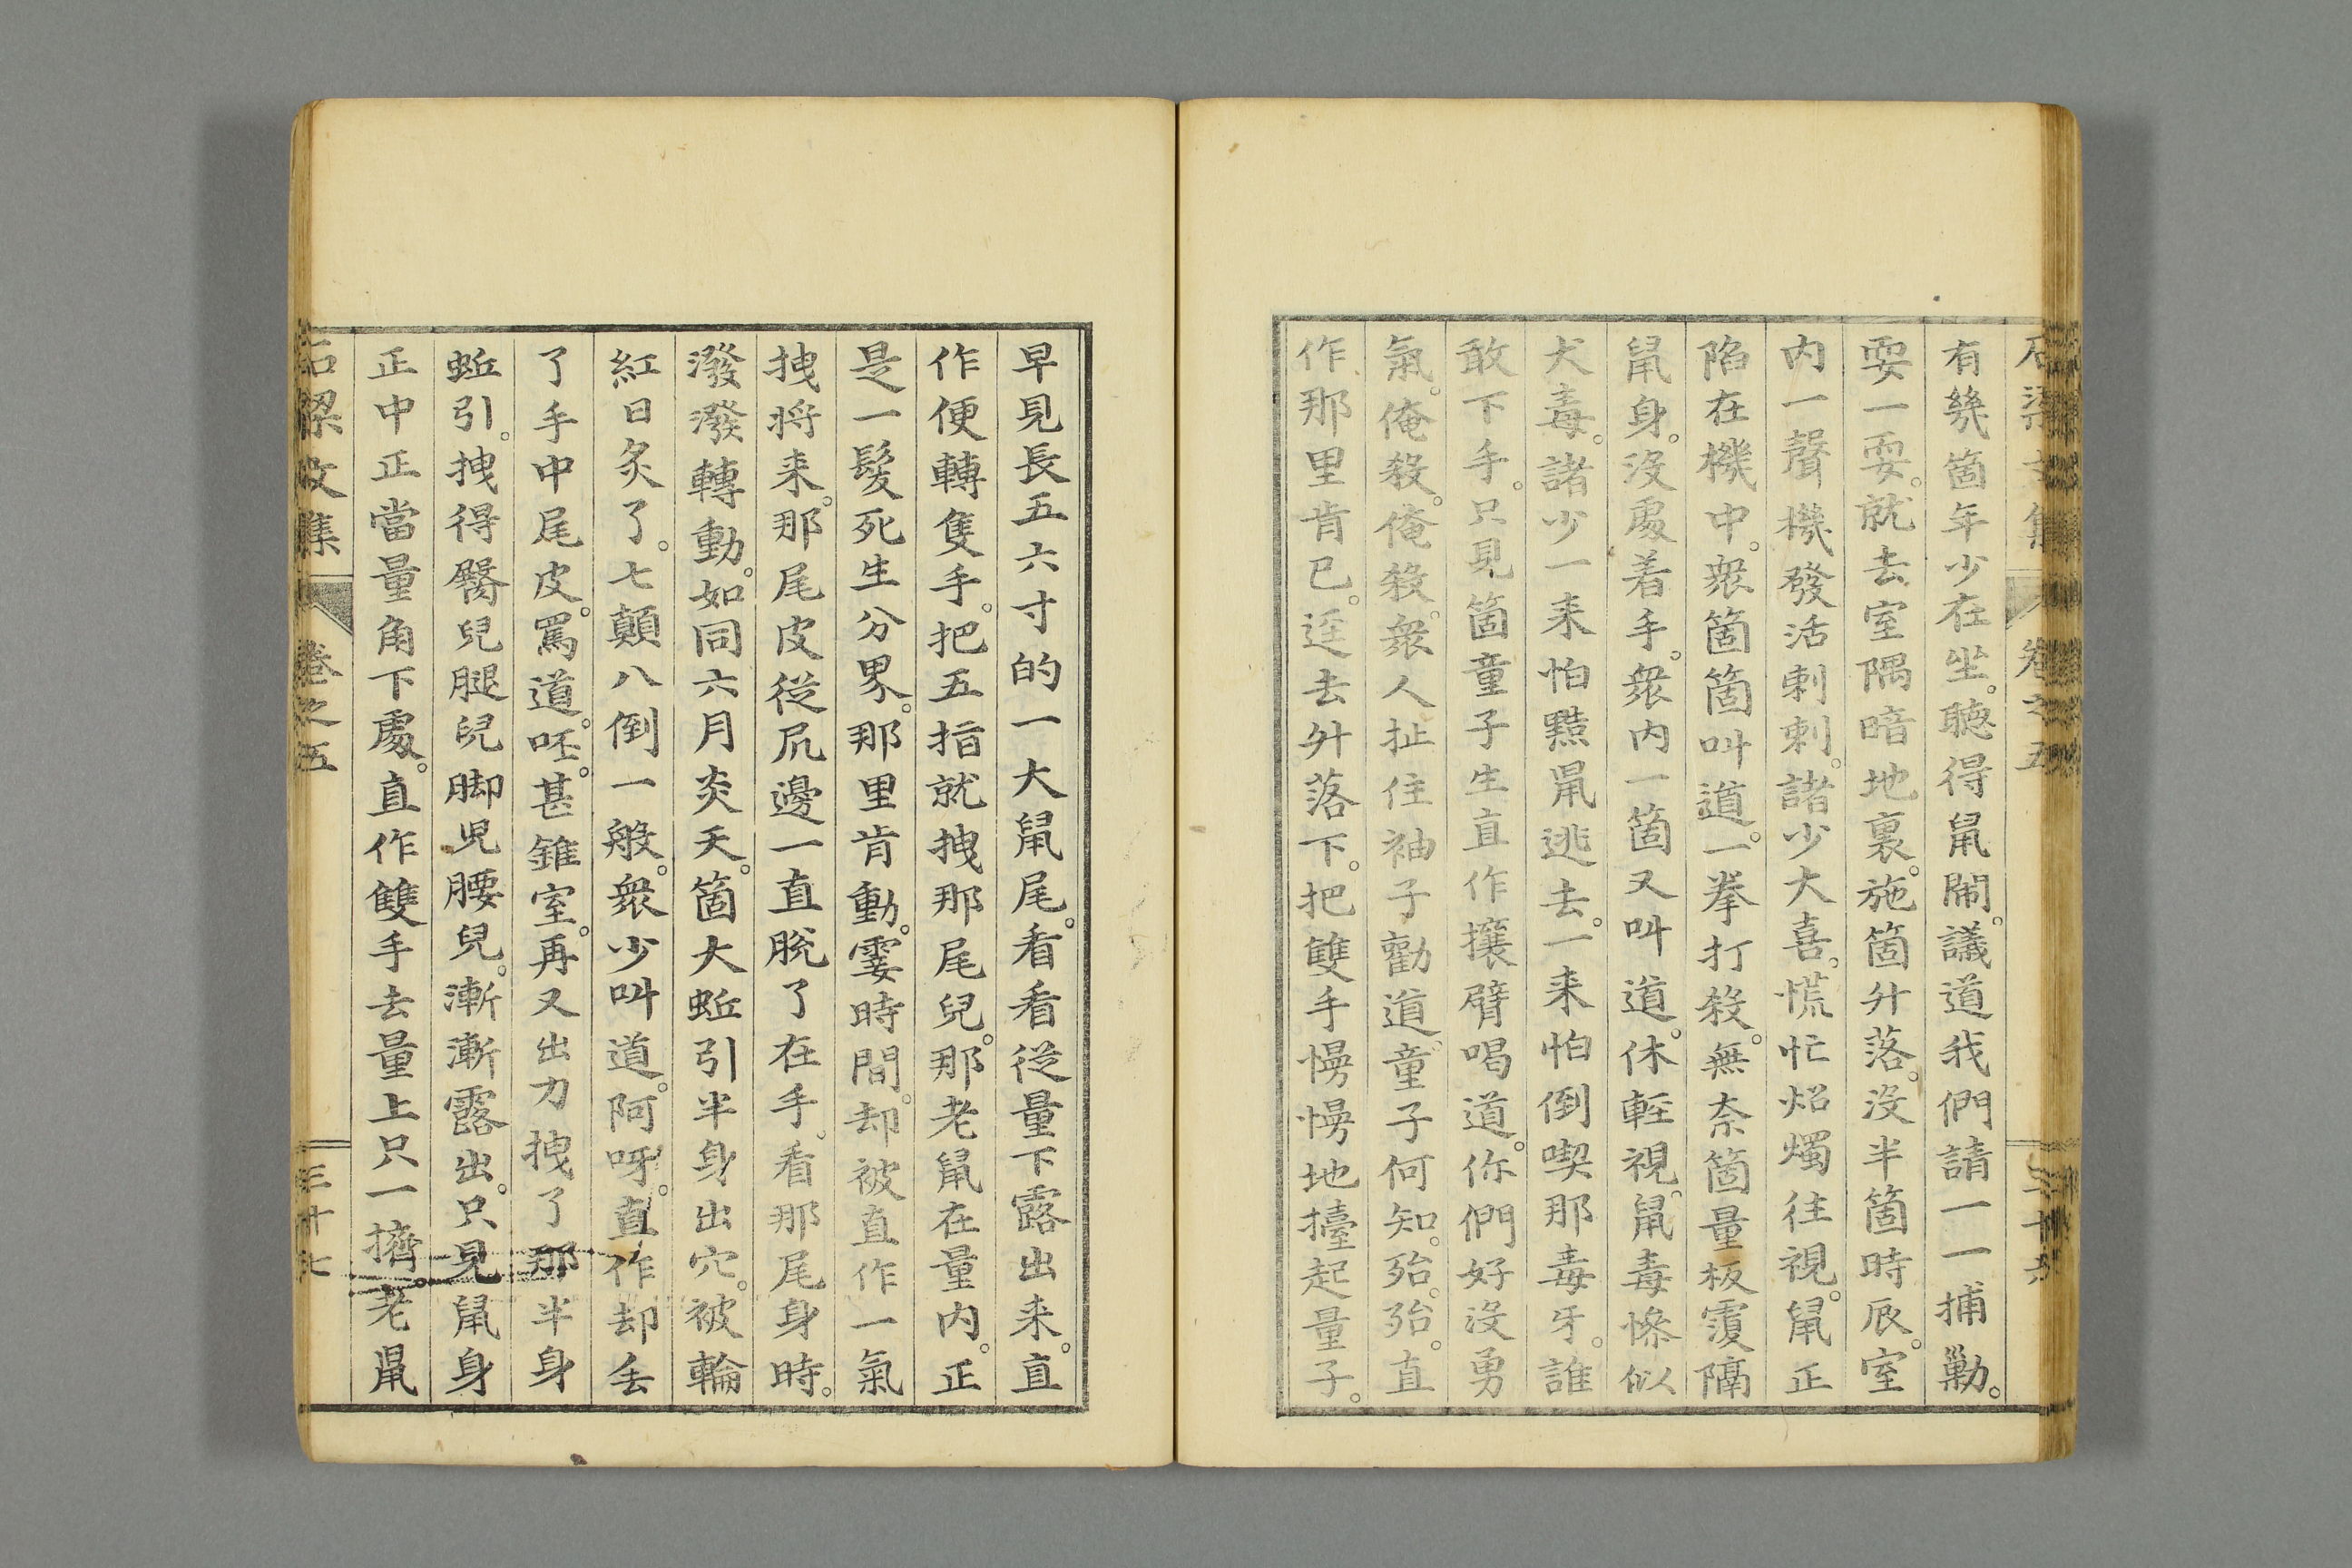 有幾箇年少在坐。聽得鼠鬧。議道我們請一一捕勦。
耍一耍。就去室隅暗地裏。施箇升落。沒半箇時辰。室
内一聲機發活剌剌。諸少大喜。慌忙炤燭往視。鼠正
陷在機中。衆箇箇叫道。一拳打殺。無奈箇量板覆隔
鼠身。沒處着手。衆内一箇又叫道。休輕視。鼠毒慘似
犬毒。諸少一来怕黠鼠逃去。一来怕倒喫那毒牙。誰
敢下手。只見箇童子生直作攘臂喝道。你們好沒勇
氣。俺殺。俺殺。衆人扯住袖子勸道。童子何知。殆。殆。直
作那里肯已。逕去升落下。把雙手慢慢地擡起量子。
早見長五六寸的一大鼠尾。看看從量下露出来。直
作便轉隻手。把五指就拽那尾兒。那老鼠在量内。正
是一髮死生分界。那里肯動。霎時間。却被直作一氣
拽将来。那尾皮從尻邊一直脫了在手。看那尾身時。
潑潑轉動。如同六月炎天。箇大蚯引半身出穴。被輪
紅日炙了。七顛八倒一般。衆少叫道。阿呀。直作却丢
了手中尾皮。罵道。呸。甚錐室。再又出力拽了那半身
蚯引。拽得臀兒腿兒脚児腰兒。漸漸露出。只見鼠身
正中正當量角下處。直作雙手去量上只一擠。老鼠
石梁文集 卷之五 三十七